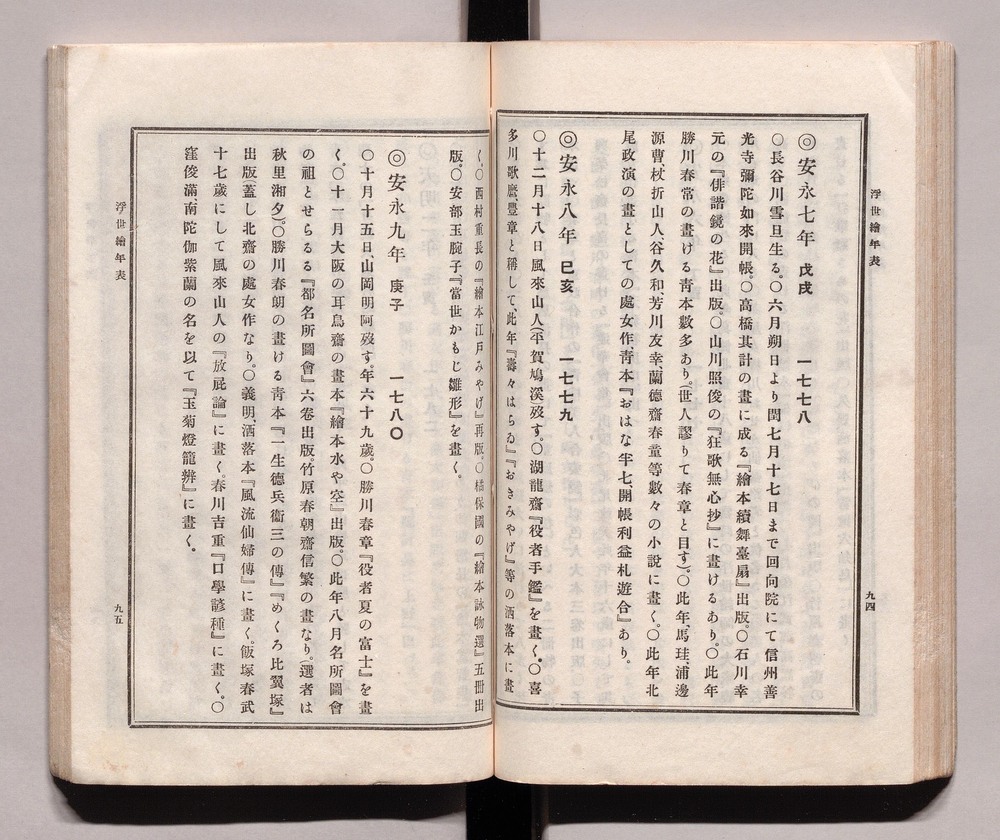 浮世繪年表
九四
◎安永七年 戊戌 一七七八
〇長谷川雪旦生る。〇六月朔日より閏七月十七日まで回向院にて信州善
光寺彌陀如來開帳。〇高橋其計の畫に成る『繪本續舞臺扇』出版。〇石川幸
元の『俳諧鏡の花』出版。〇山川照俊の『狂歌無心抄』に畫けるあり。〇此年
勝川春常の畫ける靑本數多あり。(世人謬りて春章と目す)。〇此年、馬珪、浦邊
源曹、杖折山人、谷久和、芳川友幸、蘭德齋春童等數々の小說に畫く。〇此年北
尾政演の畫としての處女作、靑本『おはな半七、開帳利益札遊合』あり。
◎安永八年 己亥 一七七九
〇十二月十八日風來山人(平賀鳩溪)歿す。〇湖龍齋『役者手鑑』を畫く。〇喜
多川歌麿、豐章と稱して、此年『壽々はらゐ』『おきみやげ』等の洒落本に畫
く。〇西村重長の『繪本江戸みやげ』再版。〇橘保國の『繪本詠物選』五冊出
版。〇安部玉腕子『當世かもじ雛形』を畫く。
◎安永九年 庚子 一七八〇
〇十月十五日、山岡明阿歿す。年六十九歲。〇勝川春章『役者夏の富士』を畫
く。〇十一月大阪の耳鳥齋の畫本『繪本水や空』出版。〇此年八月名所圖會
の祖とせらるる『都名所圖會』六卷出版。竹原春朝齋信繁の畫なり。(選者は
秋里湘夕)。〇勝川春朗の畫ける靑本『一生德兵衞三の傳』『めくろ比翼塚』
出版(蓋し北齋の處女作なり)。〇義明、洒落本『風流仙婦傳』に畫く。飯塚春武
十七歲にして風來山人の『放屁論』に畫く。春川吉重『口學諺種』に畫く。〇
窪俊滿、南陀伽紫蘭の名を以て『玉菊燈籠辨』に畫く。
浮世繪年表
九五